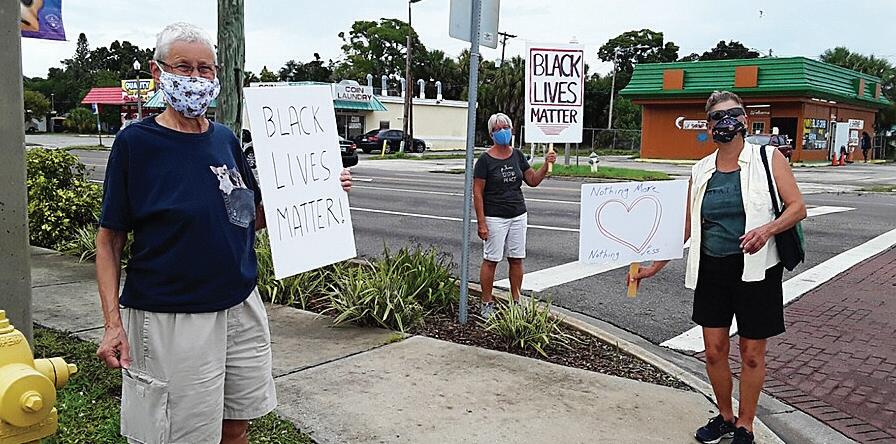 BLACK
LIVES
MATTER!
BLACK
LIVES
MATTER
Nothing More
Nothing Less
COIN
LAUNDRY
COIN